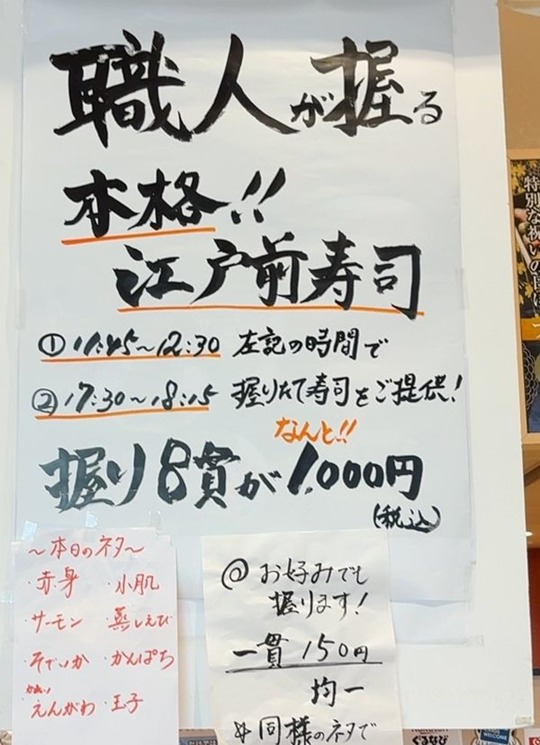 職人が握る
本格!!
江戸前寿司
① 11:45~12:30 左記の時間で
② 17:30~18:15 握りたて寿司をご提供!
なんと!!
握り8貫が1,000円
(税込)
~本日のネタ~
・赤身 ・小肌
・サーモン ・蒸しえび
・そでいか ・かんぱち
・えんがわ ・玉子
@ お好みでも
握ります!
一貫 150円
均一
※同様のネタで
特別な祝いの日は
WELCOME
ぐるなび